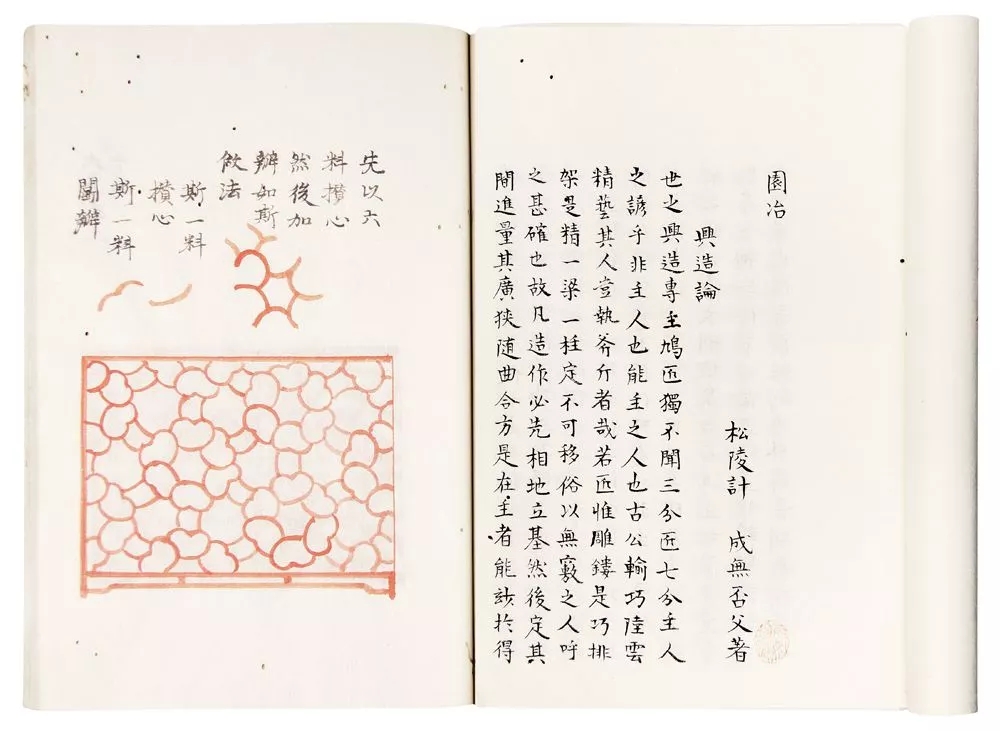 園冶
松陵計 成無否父著
興造論
世之興造專主鳩匠獨不聞三分匠七分主人
之諺乎非主人也能主之人也古公輸巧陸雲
精藝其人豈執斧斤者哉若匠惟雕鏤是巧排
架是精一梁一柱定不可移俗以無竅之人呼
之甚確也故凡造作必先相地立基然後定其
間進量其廣狹随曲合方是在主者能竗於得
先以六
料攢心
然後加
瓣如斯
做法
斯一料
攢心
斯一料
鬭瓣